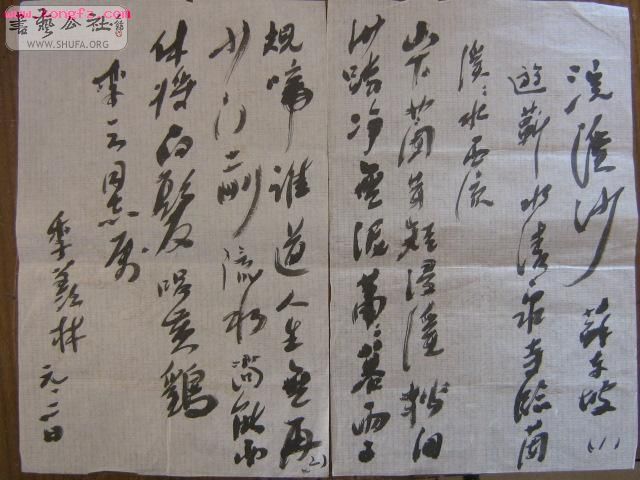 書藝公社
WWW.SHUFA.ORG
浣溪沙 蘇东坡 (一)
遊蕲水清泉寺臨蘭
溪、水西流
山下蘭芽短浸溪松间
沙路净無泥萧、暮雨子
規啼誰道人生無再 (二)
少门前流水尚能西
休将白髮唱黄鷄
同志属
季羡林